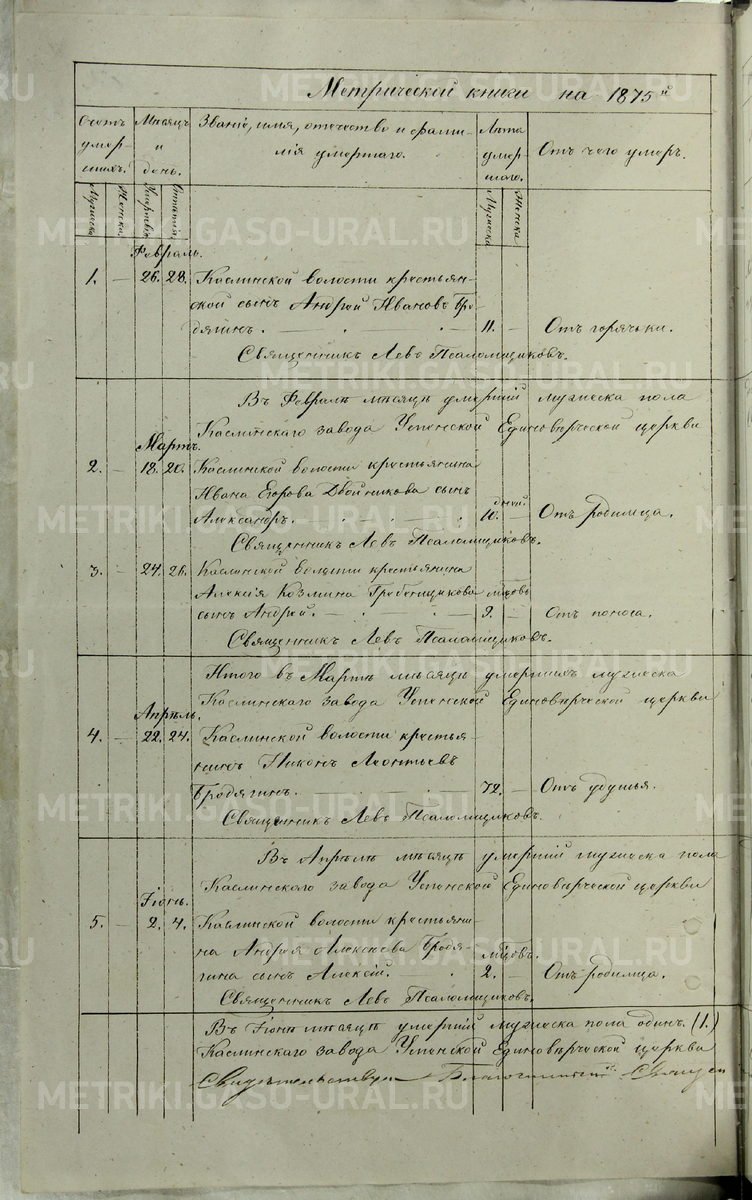 Метрической книги на 1875й
Счетъ умершихъ.
Мѣсяцъ и день.
Званіе, имя, отечество и фамилія умершаго.
Лѣта умершаго.
Отъ чего умеръ.
Мужеска Женска
Мужеска Женска
Февраль.
1. — 26. 28. Каслинской волости крестьян-
ской сынъ Андрей Ивановъ Бро-
дягинъ. 11. — Отъ горячьки.
Священникъ Левъ Псаломщиковъ.
Въ Февралѣ мѣсяцѣ умершій мужеска пола
Каслинскаго завода Успенской Единовѣрческой церкви
Мартъ.
2. — 18. 20. Каслинской волости крестьянина
Ивана Егорова Двойникова сынъ дней
Александръ. 10. — Отъ родимца.
Священникъ Левъ Псаломщиковъ.
3. — 24. 26. Каслинской волости крестьянина
Алексія Козмина Гребенщикова мѣсцовъ
сынъ Андрей. 9. — Отъ поноса.
Священникъ Левъ Псаломщиковъ.
Итого въ Мартѣ мѣсяцѣ умершихъ мужеска
Каслинскаго завода Успенской Единовѣрческой церкви
Апрѣль.
4. — 22. 24. Каслинской волости крестья-
нинъ Никонъ Леонтьевъ
Бродягинъ. 72. — Отъ удушья.
Священникъ Левъ Псаломщиковъ.
Въ Апрѣлѣ мѣсяцѣ умершій мужеска пола
Каслинскаго завода Успенской Единовѣрческой церкви
Іюнь.
5. — 2. 4. Каслинской волости крестьяни-
на Андрея Алексѣева Бродя- мѣсцовъ.
гина сынъ Алексій. 2. — Отъ родимца.
Священникъ Левъ Псаломщиковъ.
Въ Іюнѣ мѣсяцѣ умершій мужеска пола одинъ. (1.)
Каслинскаго завода Успенской Единовѣрческой церкви
Свидѣтельствую Благочинный Священ
METRIKI.GASO-URAL.RU